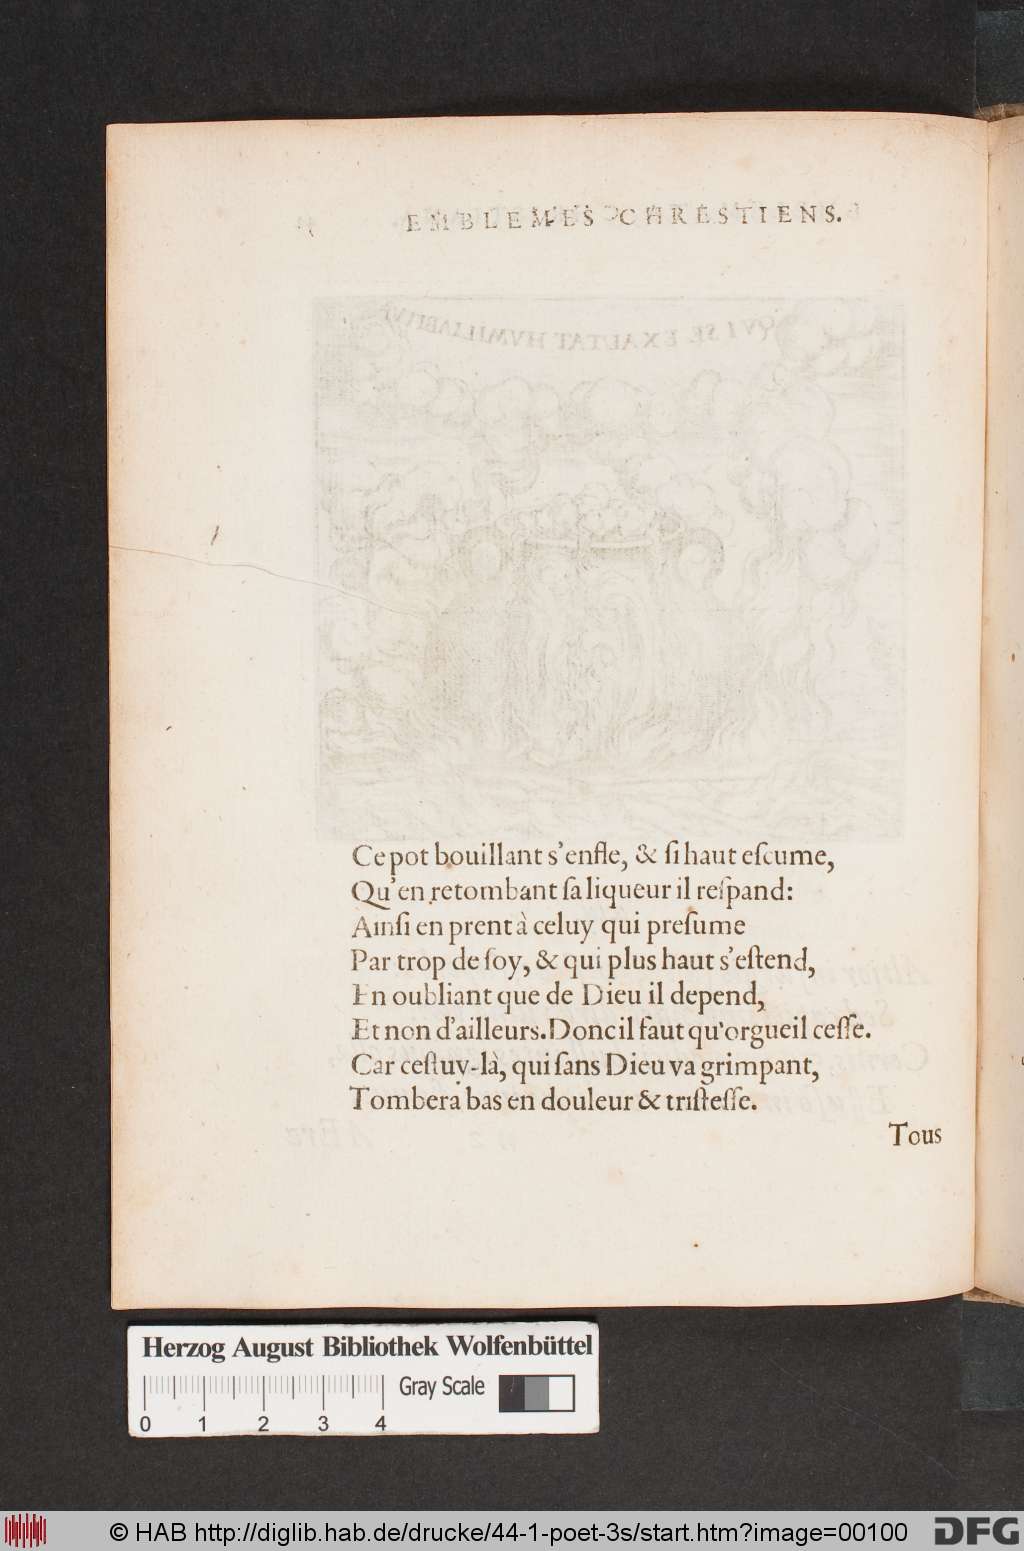 EMBLEMES CHRESTIENS.
QVI SE EXALTAT HVMILIABITVR
Ce pot bouillant s'enfle, & ſi haut eſcume,
Qu'en retombant ſa liqueur il reſpand:
Ainſi en prent à celuy qui preſume
Par trop de ſoy, & qui plus haut s'eſtend,
En oubliant que de Dieu il depend,
Et non d'ailleurs. Donc il faut qu'orgueil ceſſe.
Car ceſtuy-là, qui ſans Dieu va grimpant,
Tombera bas en douleur & triſteſſe.
Tous
Herzog August Bibliothek Wolfenbüttel
Gray Scale
0 1 2 3 4
© HAB http://diglib.hab.de/drucke/44-1-poet-3s/start.htm?image=00100
DFG